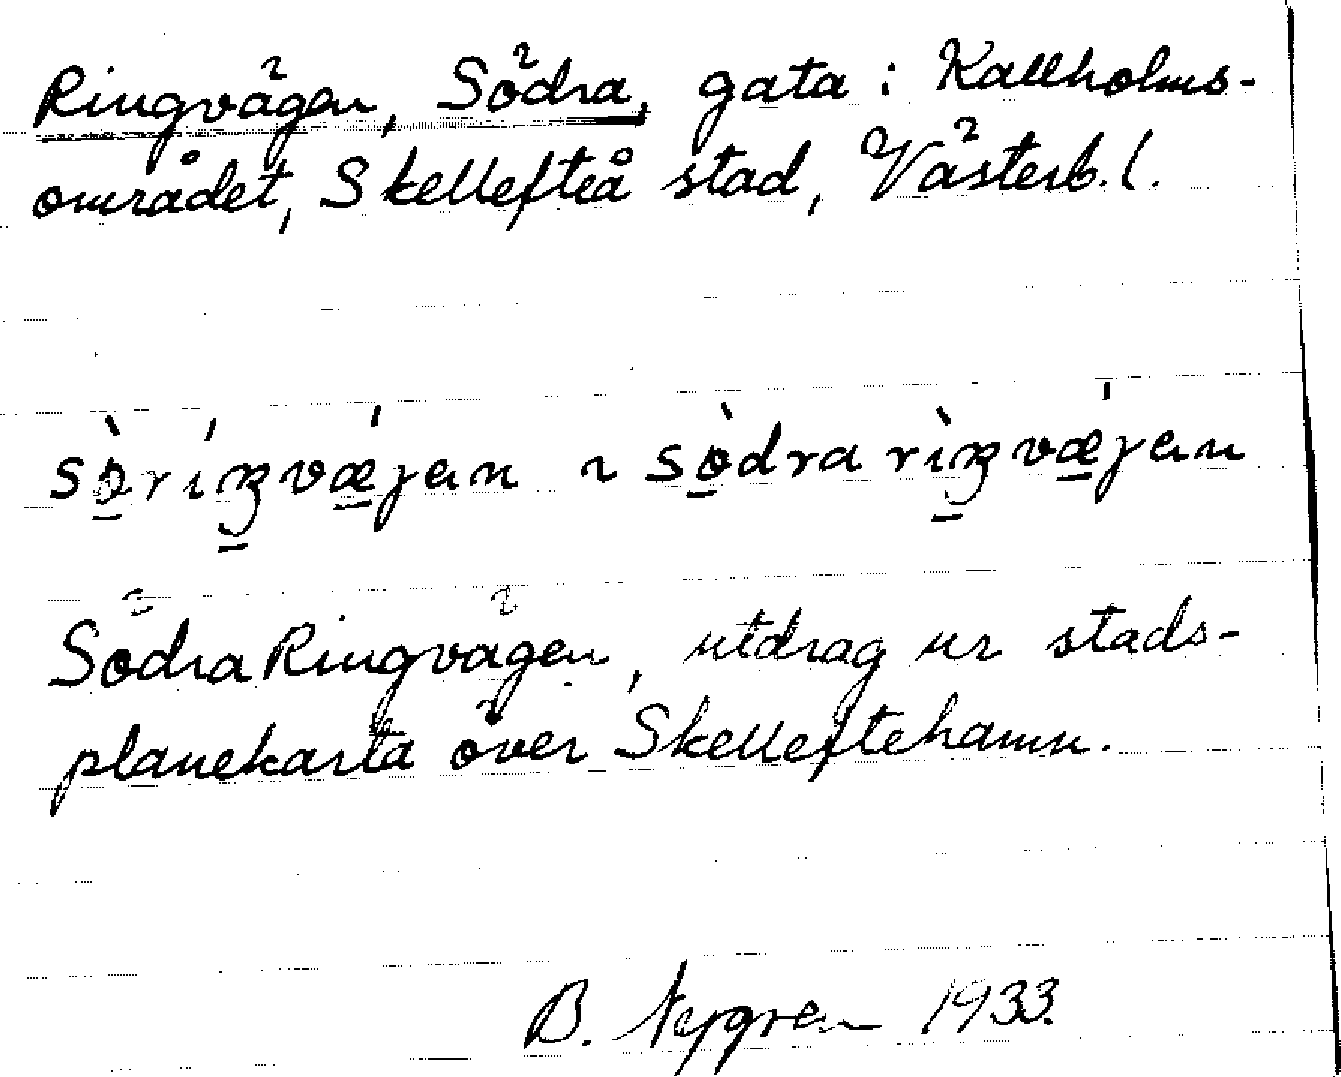 Ringvägen, Södra, gata i Kallholms-
området, Skellefteå stad, Västerb. l.
sö̀ríŋvǽjen ~ sö̀dra rìŋvǽjen
Södra Ringvägen, utdrag ur stads-
planekarta över Skelleftehamn.
B. 1933.